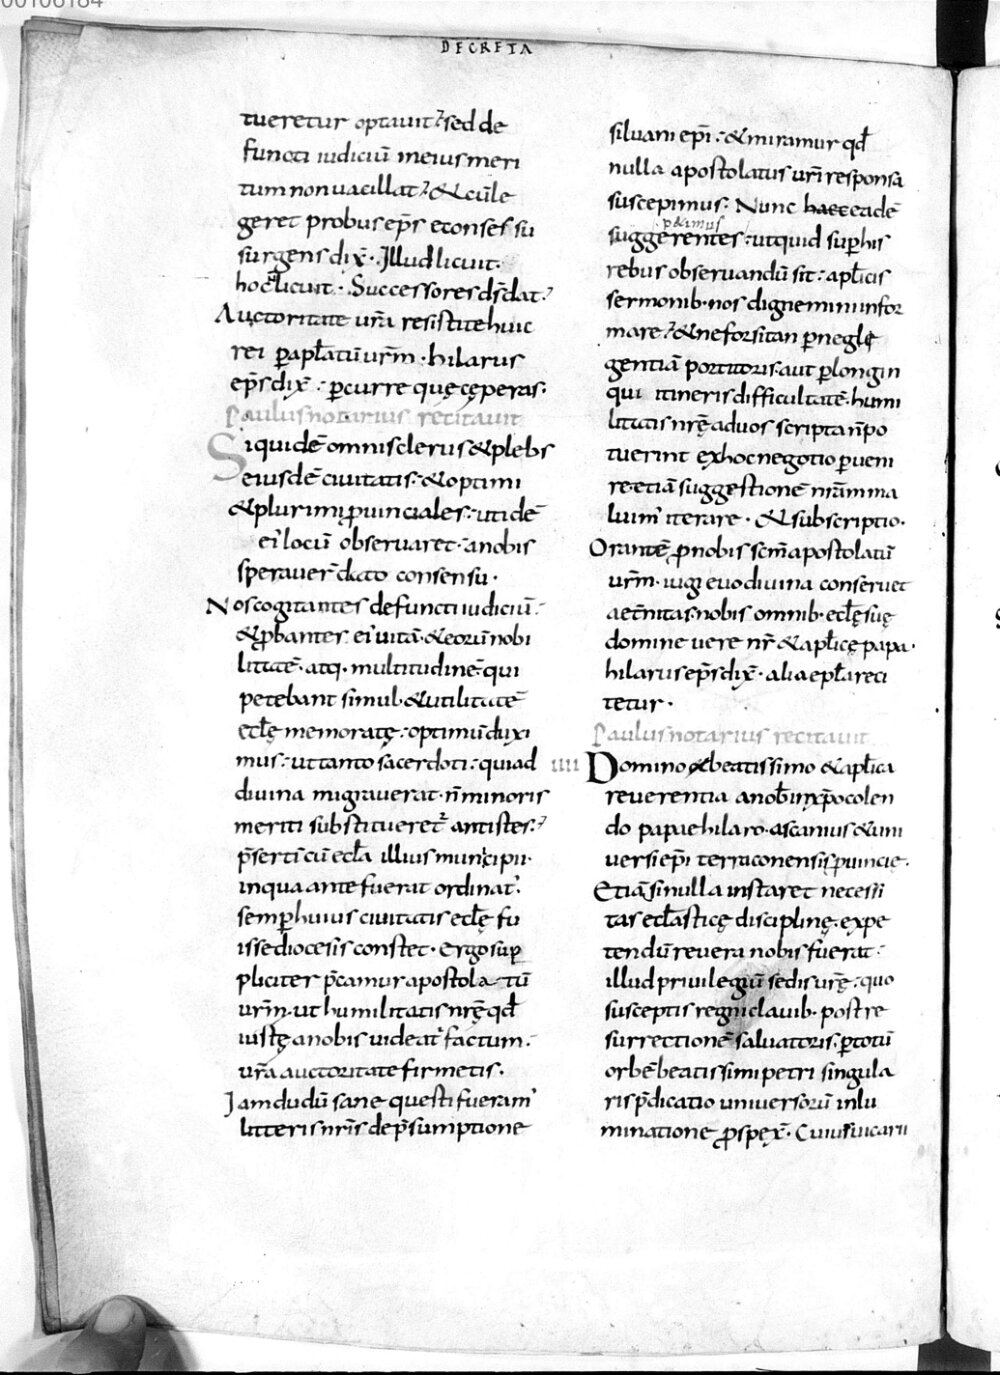 00106184
DECRETA
tueretur optauit; sed de
functi iudiciū ineius meri
tum non uacillat; & cū le
geret probus ep̄s e consessu
surgens dix̄. Illud licuit.
hoc n̄ licuit. Successores dſ dat;
Auctoritate ur̄a resistite huic
rei p̱ apl̄atū ur̄m. hilarus
ep̄s dix̄: p̱curre quę cęperas.
Paulus notarius recitauit
Siquidē omnis clerus & plebs
eiusdē ciuitatis: & optimi
& plurimi ꝓuinciales: ut idē
ei' locū obseruaret: a nobis
sperauer̄ dato consensu.
Nos cogitantes defuncti iudiciū:
& ꝓbantes ei' uitā. & eorū nobi
litatē. atq. multitudinē qui
petebant simul. & utilitatē
eccl̄ę memoratę: optimū duxi
mus: ut tanto sacerdoti: qui ad
diuina migrauerat. n̄ minoris
meriti substitueret̄ antistes;
p̄sertī cū eccl̄a illius municipii.
in qua ante fuerat ordinat'.
semp̱ huius ciuitatis eccl̄ę fu
isse diocesis constet. Ergo sup
pliciter p̄camur apostolatū
ur̄m. ut humilitatis nr̄ę qd̄
iustę a nobis uideat' factum.
ur̄a auctoritate firmetis.
Iam dudū sane questi fueram'
litteris nr̄is de p̄sumptione
siluani ep̄i: & miramur qd̄
nulla apostolatus ur̄i responsa
suscepimus. Nunc haec eadē
petimus
suggerentes: ut quid sup̱ his
rebus obseruandū sit: apl̄icis
sermonib. nos dignemini infor
mare; & ne forsitan p̱ neglę
gentiā portitoris. aut p̱ longin
qui itineris difficultatē. humi
litatis nr̄ę ad uos scripta n̄ po
tuerint ex hoc negotio p̱ueni
re. etiā suggestionē nr̄am ma
luim' iterare. & subscriptio.
Orantē ꝓ nobis sc̄m apostolatū
ur̄m. iugi euo diuina conseruet
aet̄nitas. nobis omnib. eccl̄ę suę
domine uere nr̄ & apl̄icę papa.
hilarus ep̄s dix̄. alia epl̄a reci
tetur.
Paulus notarius recitauit
IIII Domino beatissimo & apl̄ica
reuerentia a nob̄ in xp̄o colen
do papae hilaro. ascanius & uni
uersi ep̄i terraconensis ꝓuincię.
Etiā si nulla instaret necessi
tas eccl̄asticę disciplinę. expe
tendū reuera nobis fuerat:
illud priuilegiū sedis ur̄ę: quo
susceptis regni clauib. post re
surrectionē saluatoris. p̱ totū
orbē beatissimi petri singula
ris p̄dicatio uniuersorū inlu
minatione ꝓspex̄. Cuius uicarii